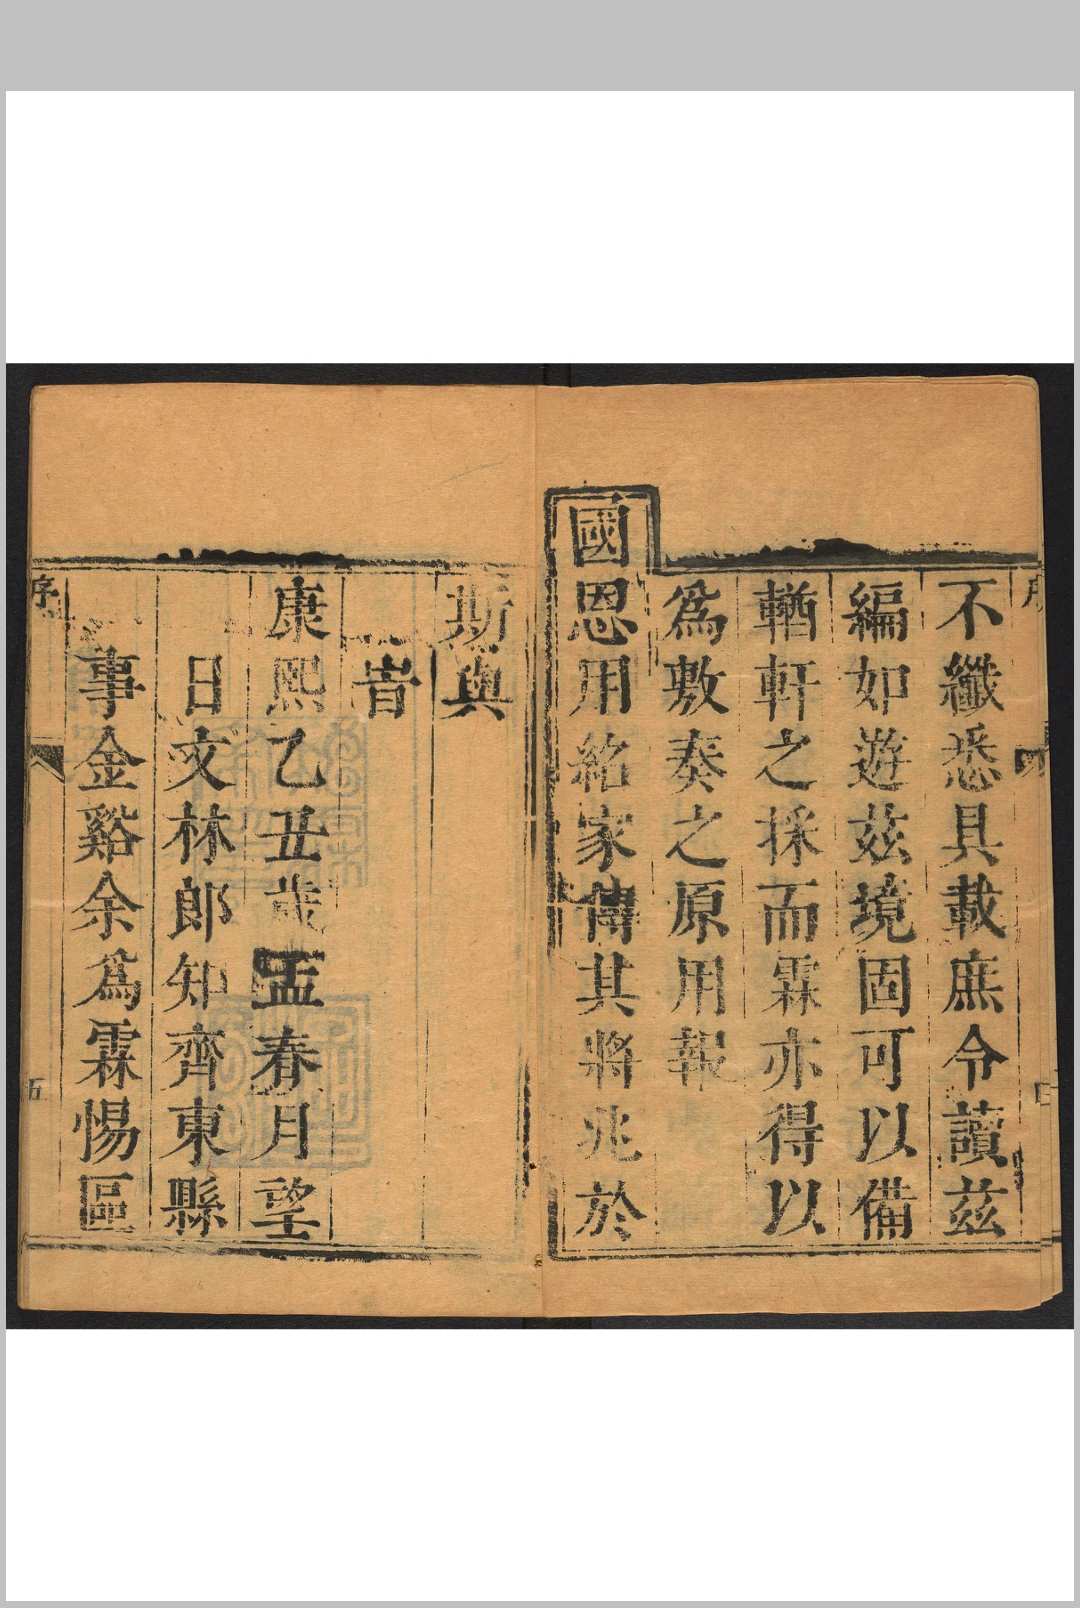 序
四
不纖悉具載庶令讀茲
編如遊茲境固可以備
輶軒之採而霖亦得以
爲敷奏之原用報
國恩用紹家傳其將兆於
斯與
旹
康熙乙丑歲孟春月望
日文林郎知齊東縣
事金谿余爲霖惕區
序
五